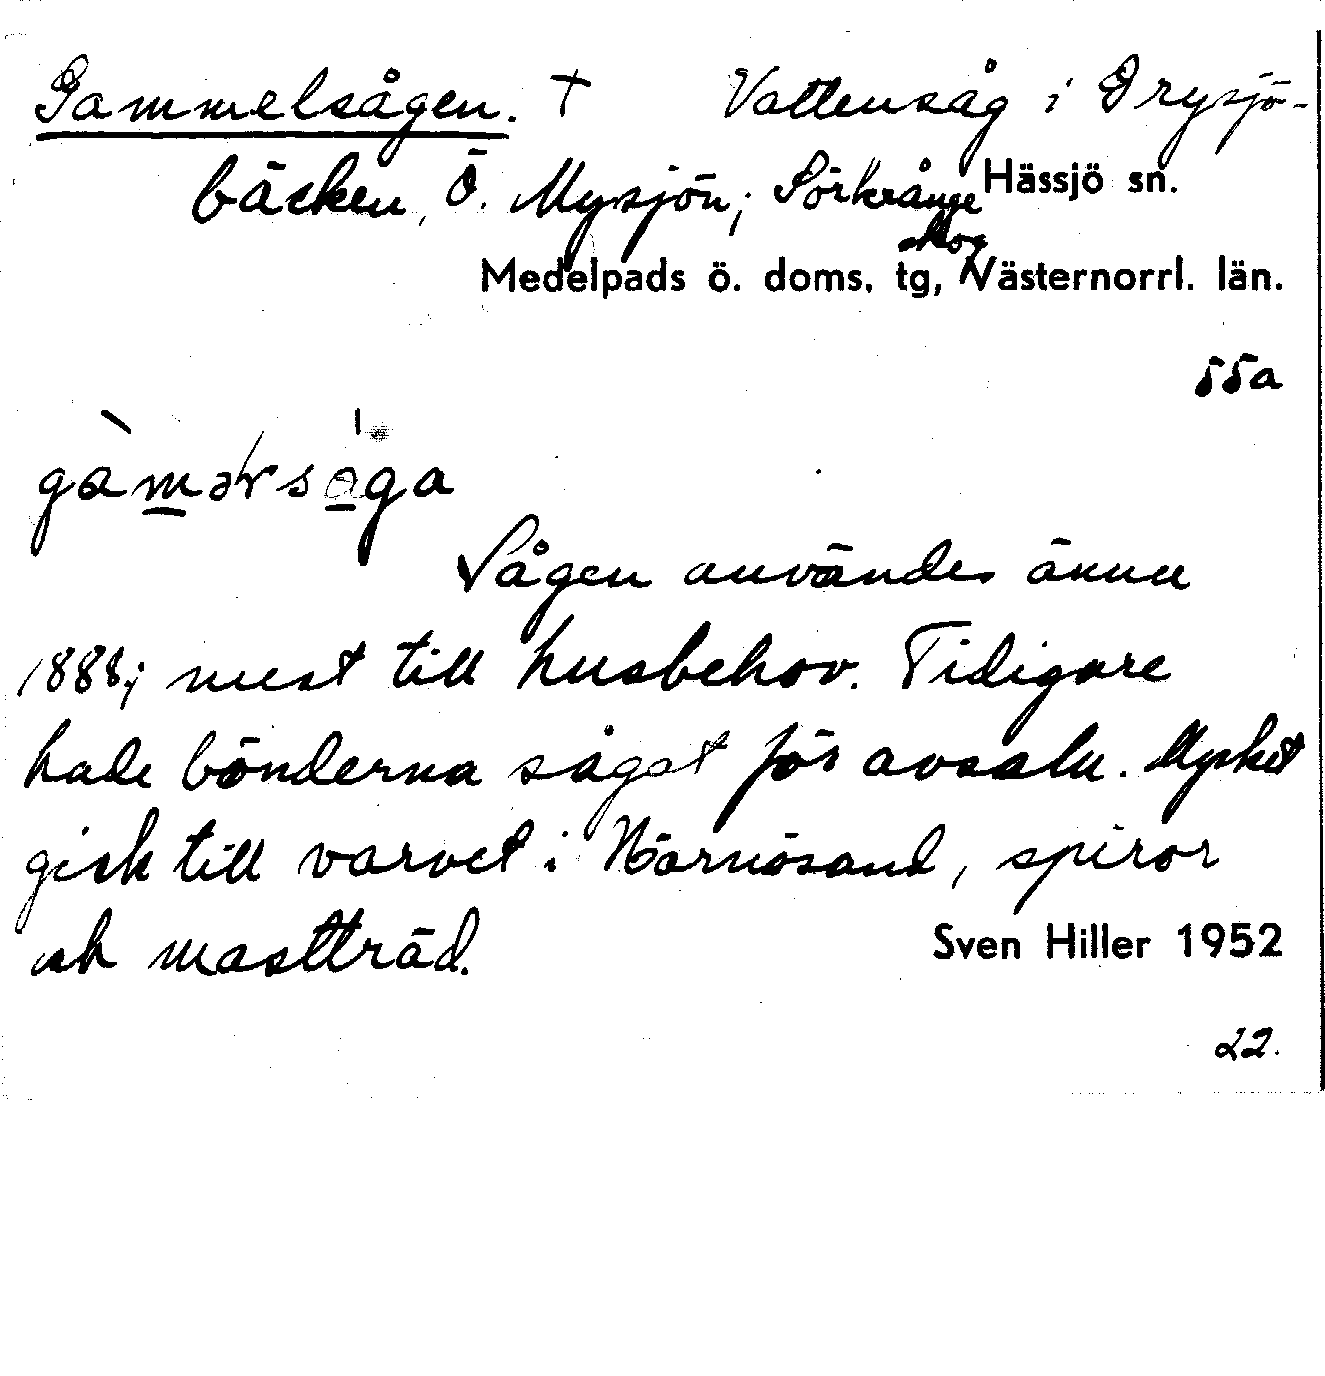 Gammelsågen. † Vattensåg i Drysjö-
bäcken, Ö. Mysjön; Sörkrånge Hässjö sn.
skog
Medelpads ö. doms. tg, Västernorrl. län.
55a
Sågen användes ännu
1888; mest till husbehov. Tidigare
hade bönderna sågat för avsalu. Mycket
gick till varvet i Härnösand, spiror
och mastträd.
Sven Hiller 1952
22.